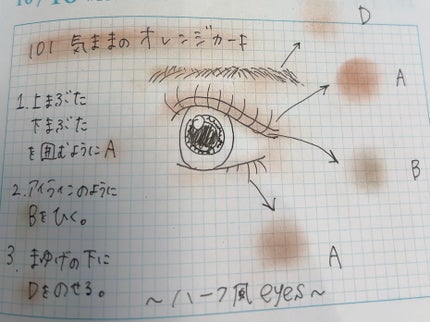 10/10
D
101 気ままのオレンジカード
A
1.上まぶた
下まぶた
を囲むようにA
B
2.アイラインのように
Bをひく。
3.まゆげの下に
Dをのせる。
A
〜ハーフ風eyes〜